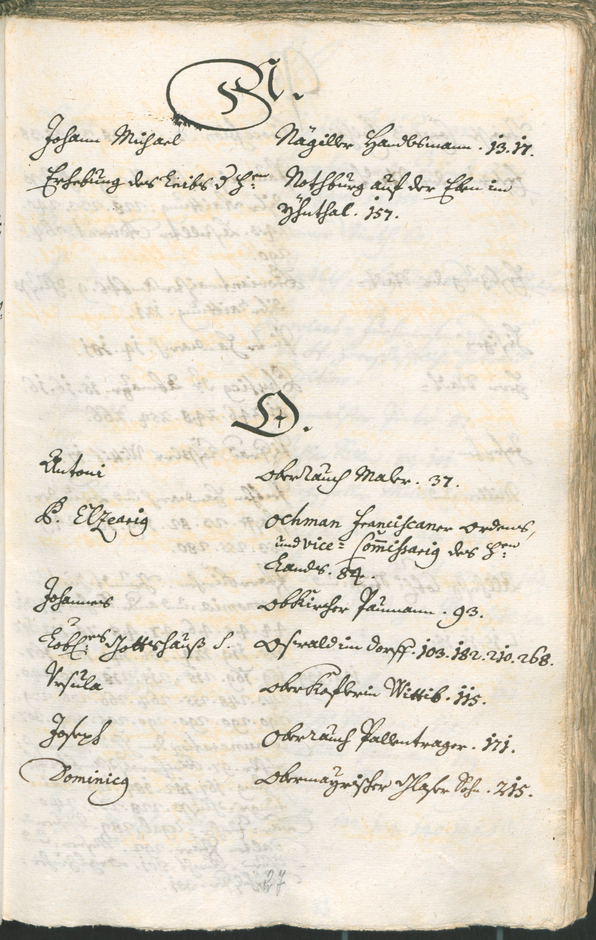 N.
Johann Michael Nägiller Handlsmann . 13. 17.
Erhebung des Leibs der H: Nothburg auf der Eben im
Yhnthal . 157.
O.
Antoni Oberrauch Maler . 37.
P. Elzearig Ochman Franciscaner Ordens,
und vice= Com̄issarig des H:
Lands . 84.
Johannes Obkircher Paumann . 93.
Lobl: Gottshauß S. Oswald im Dorff . 103. 182. 210. 268.
Vrsula Oberkoflerin Wittib . 115.
Joseph Oberrauch Pallentrager . 171.
Dominicg Obermayrischer Sohn . 215.
27